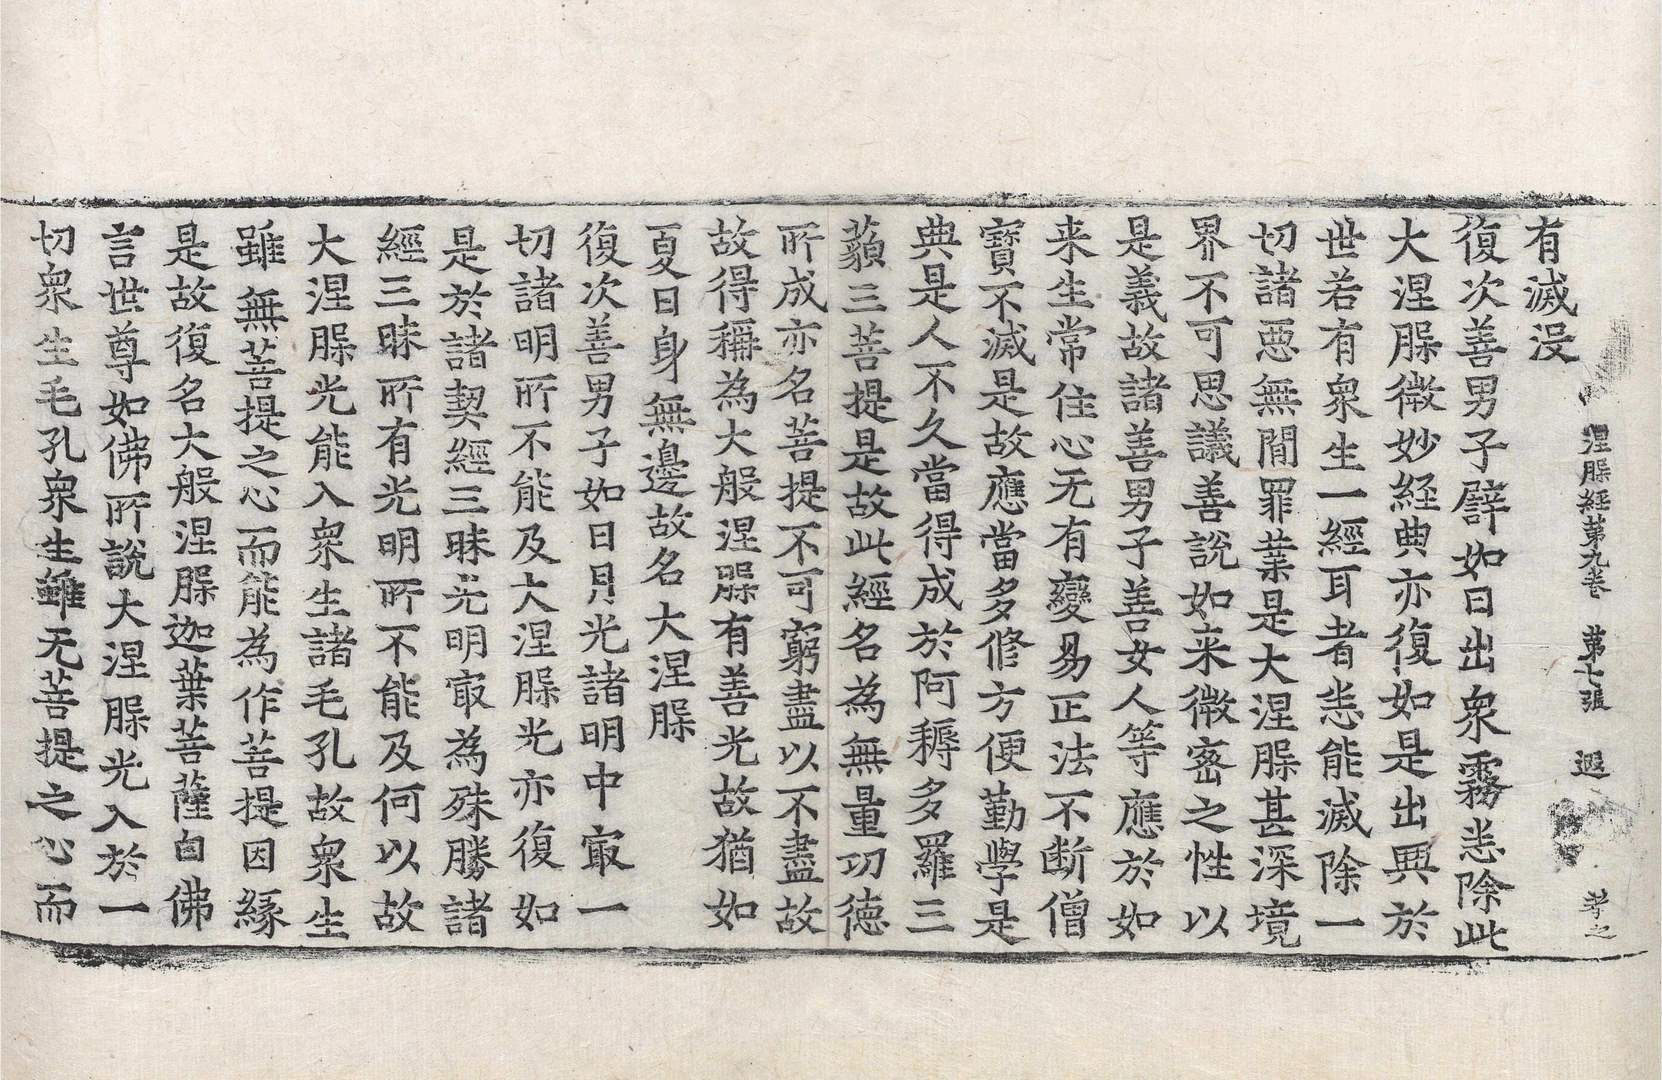 涅槃経苐九卷　苐七張　遐　孝之
有滅没
復次善男子譬如日出衆霧悉除此
大涅槃微妙経典亦復如是出興於
世若有衆生一經耳者悉能滅除一
切諸悪無閒罪業是大涅槃甚深境
界不可思議善說如来微密之性以
是義故諸善男子善女人等應於如
来生常住心无有變易正法不斷僧
寶不滅是故應當多修方便勤學是
典是人不久當得成於阿耨多羅三
藐三菩提是故此經名為無量功德
所成亦名菩提不可窮盡以不盡故
故得稱為大般涅槃有善光故猶如
夏日身無邊故名大涅槃
復次善男子如日月光諸明中㝡一
切諸明所不能及大涅槃光亦復如
是於諸契經三昧光明㝡為殊勝諸
經三昧所有光明所不能及何以故
大涅槃光能入衆生諸毛孔故衆生
雖無菩提之心而能為作菩提因緣
是故復名大般涅槃迦葉菩薩白佛
言世尊如佛所說大涅槃光入於一
切衆生毛孔衆生雖无菩提之心而